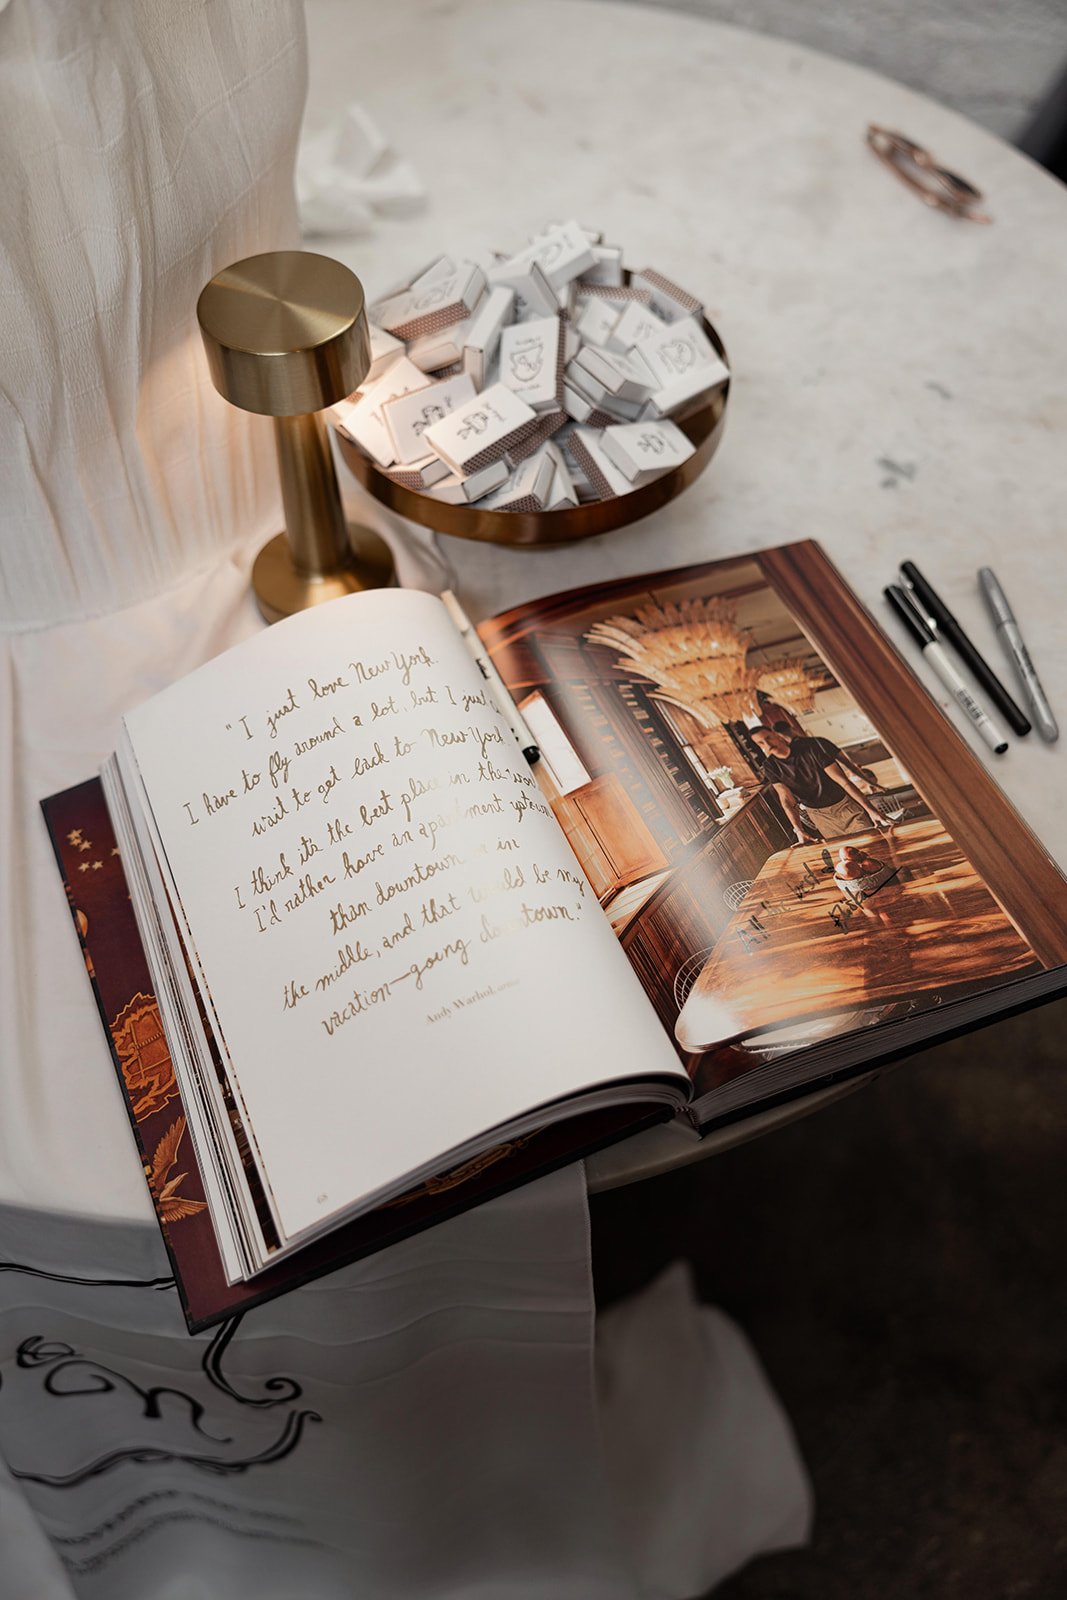 "I just love New York.
I have to fly around a lot, but I just
wait to get back to New York.
I think it's the best place in the
I'd rather have an apartment uptown
than downtown or in
the middle, and that would be my
vacation—going downtown."
Andy Warhol, artist
68
All the best